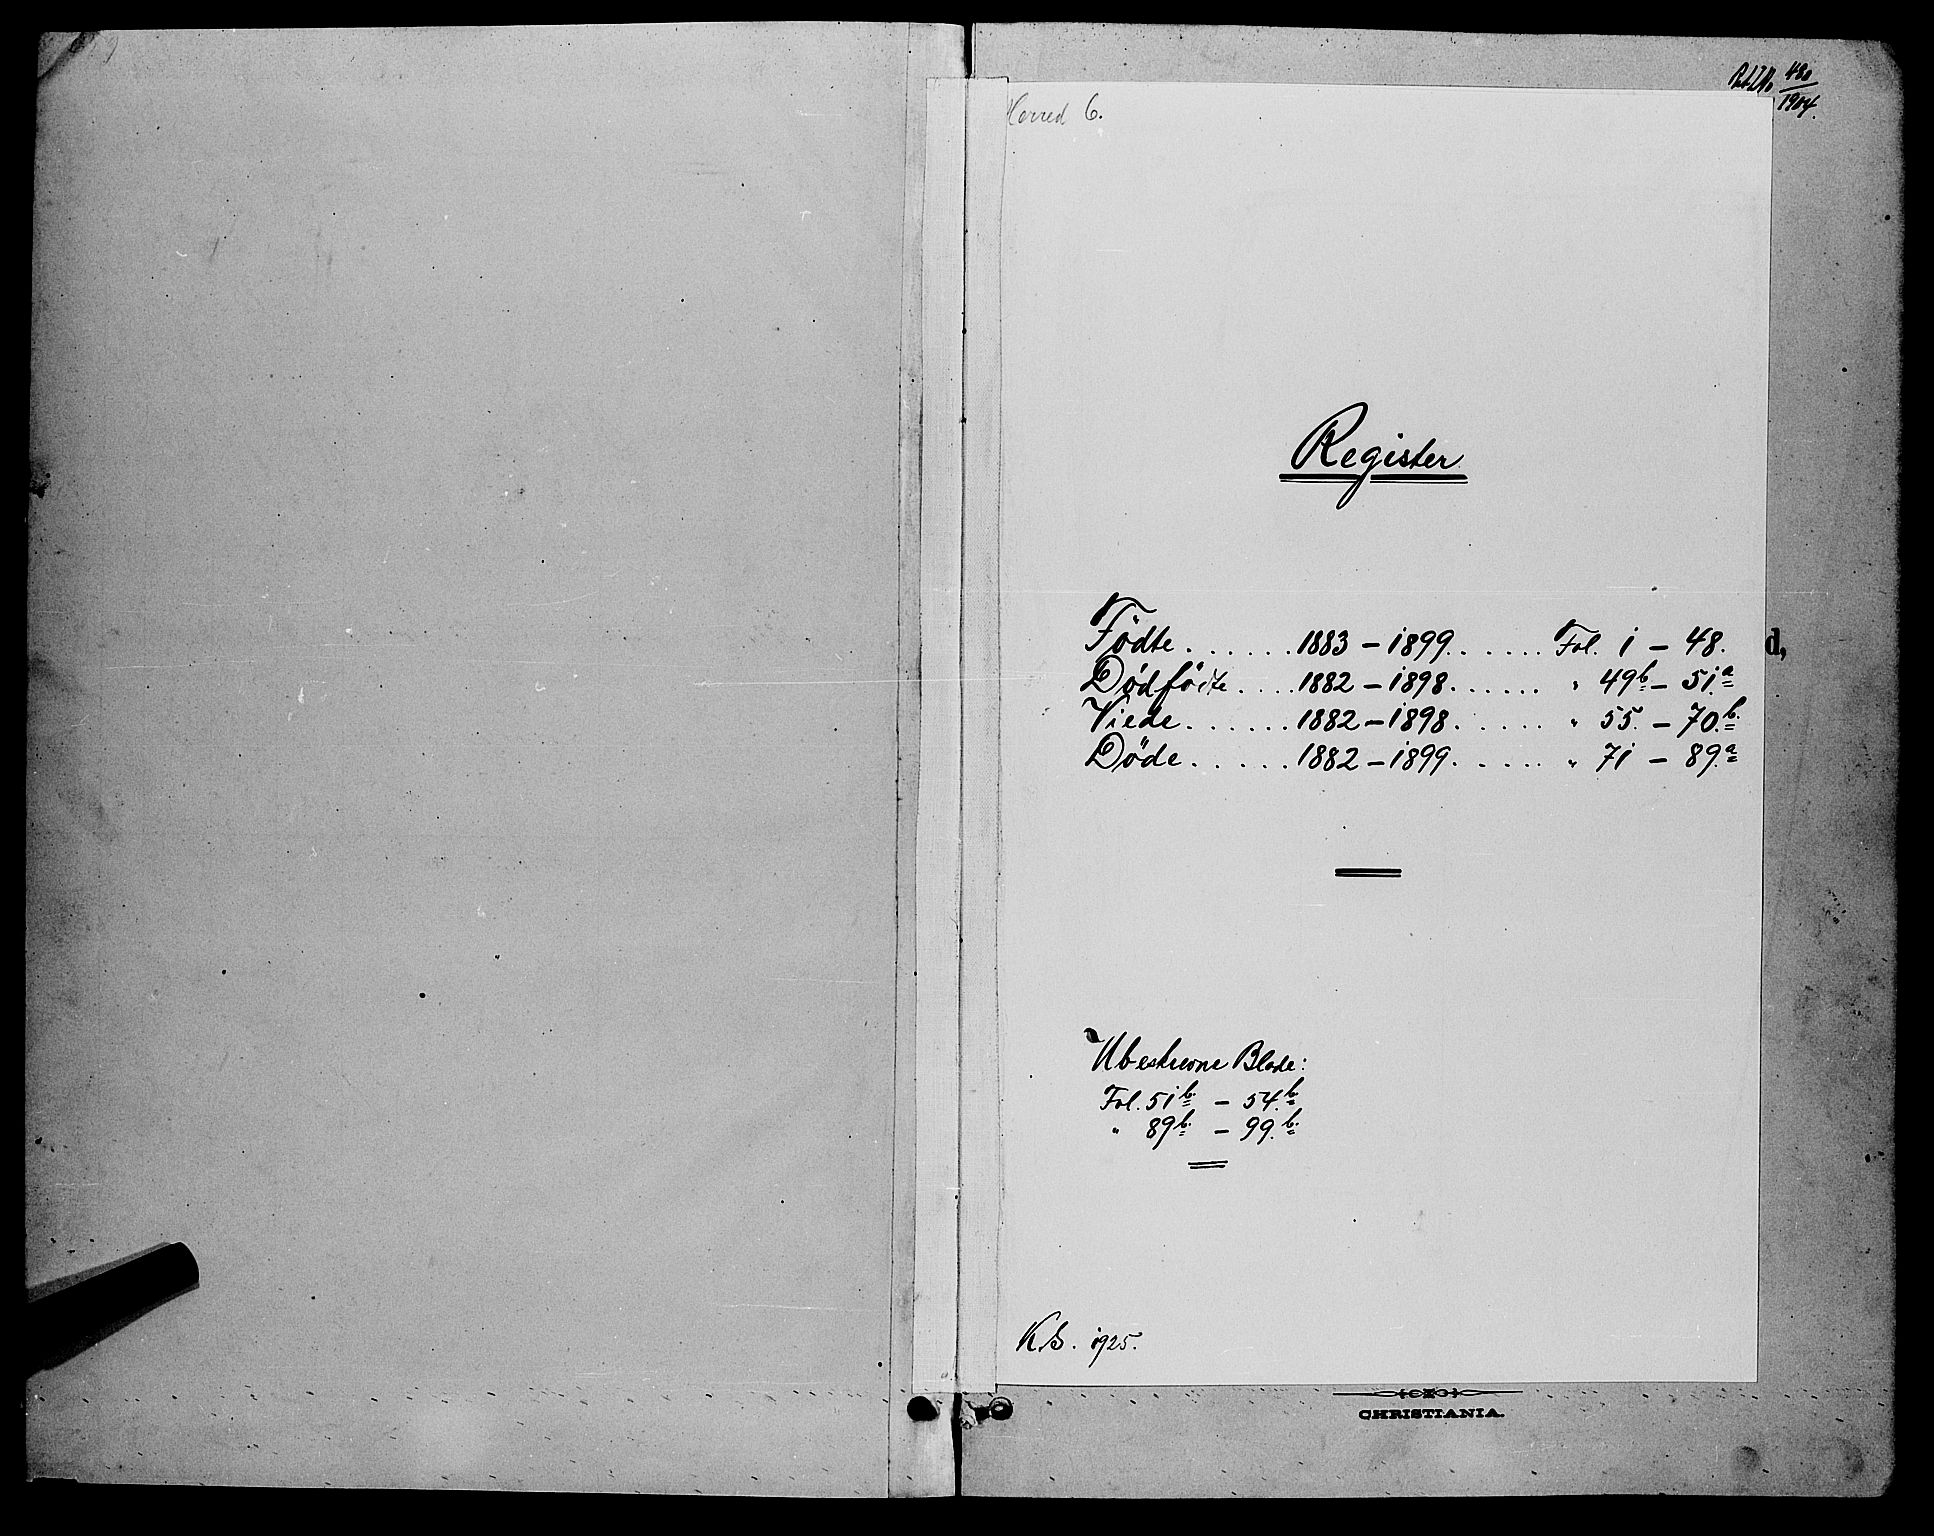 480
1904.
Herred 6.
Register
Födte . . . . . . 1883 – 1899. . . . . . Fol. 1 – 48.
d,
Dødfødte . . . . 1882 – 1898. . . . . . " 49b. – 51.a
Viede . . . . . . 1882 – 1898. . . . . . " 55. – 70.b.
Döde . . . . . . 1882 – 1899. . . . . . " 71 – 89.a
Ubeskrevne Blade:
Fol. 51b. – 54.b.
" 89b. – 99.b.
K.S. 1925.
CHRISTIANIA.